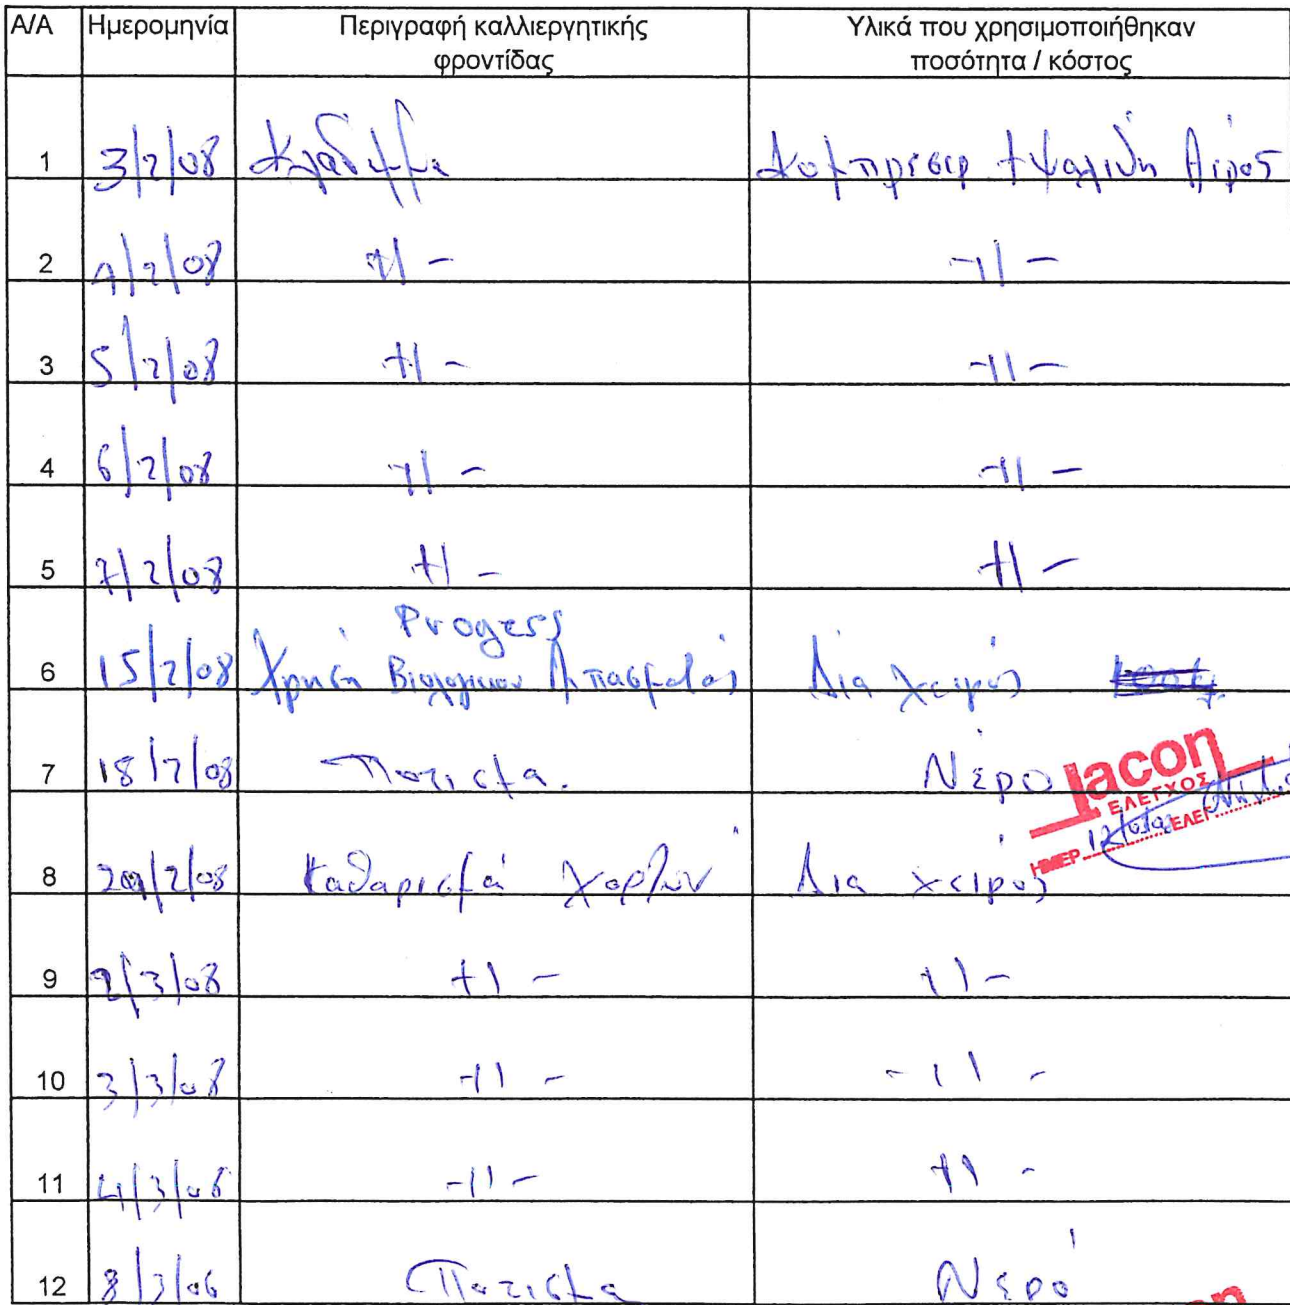 Α/Α Ημερομηνία Περιγραφή καλλιεργητικής φροντίδας Υλικά που χρησιμοποιήθηκαν ποσότητα / κόστος
1 3/2/08 Κλάδεμμα Κομπρεσερ + Ψαλιδη Αερος
2 4/2/08 -||- -||-
3 5/2/08 -||- -||-
4 6/2/08 -||- -||-
5 7/2/08 -||- -||-
Progress
6 15/2/08 Χρηση Βιολογικου Λιπασματος Δια χειρός
7 18/2/08 Ποτισμα. Νερο
lacon
ΕΛΕΓΧΟΣ
ΗΜΕΡ ΕΛΕΓ
8 2/08 Καθαρισμα χορτων Δια χειρός
9 2/3/08 -||- -||-
10 3/3/08 -||- -||-
11 4/3/08 -||- -||-
12 8/3/08 Ποτισμα Νερό